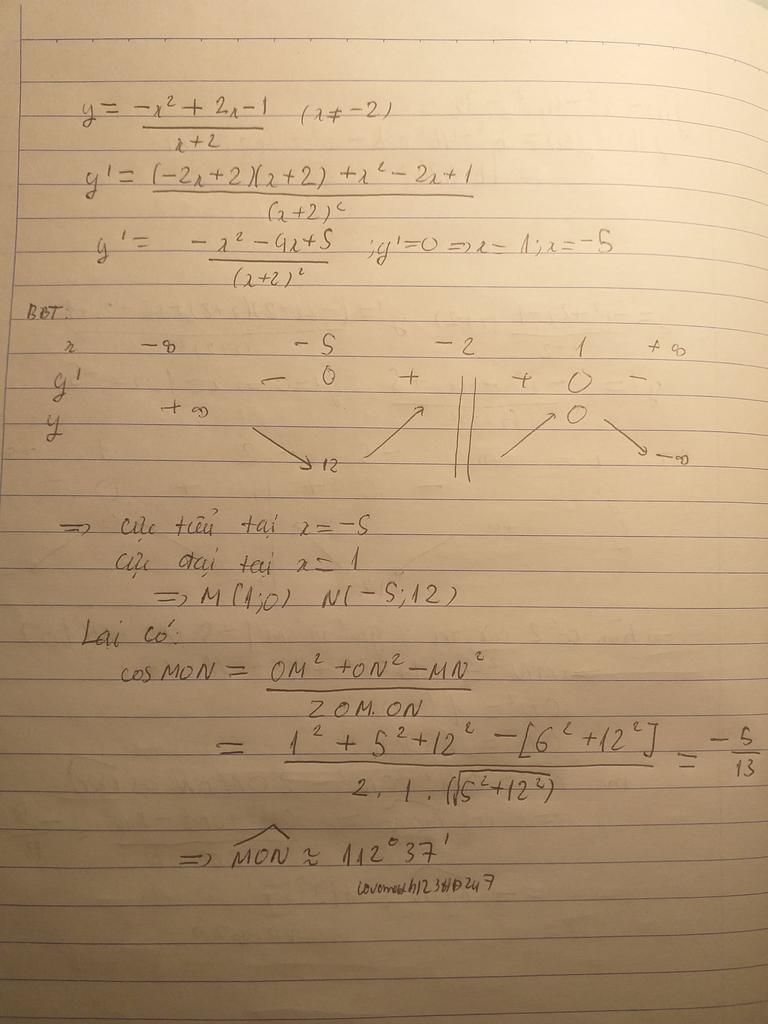 y = (-x² + 2x - 1)/(x+2) (x ≠ -2)
y' = ((-2x+2)(x+2) + x² - 2x + 1)/(x+2)²
y' = (-x² - 4x + 5)/(x+2)² ; y' = 0 => x = 1 ; x = -5
BBT:
x -∞ -5 -2 1 +∞
y' - 0 + || + 0 -
y +∞ ↘ 12 ↗ || ↗ 0 ↘ -∞
=> cực tiểu tại x = -5
cực đại tại x = 1
=> M(1;0) N(-5;12)
Lại có:
cos MON = (OM² + ON² - MN²)/(2 OM. ON)
= (1² + 5² + 12² - [6² + 12²])/(2 . 1 . (√(5² + 12²))) = -5/13
=> MON ≈ 112°37'